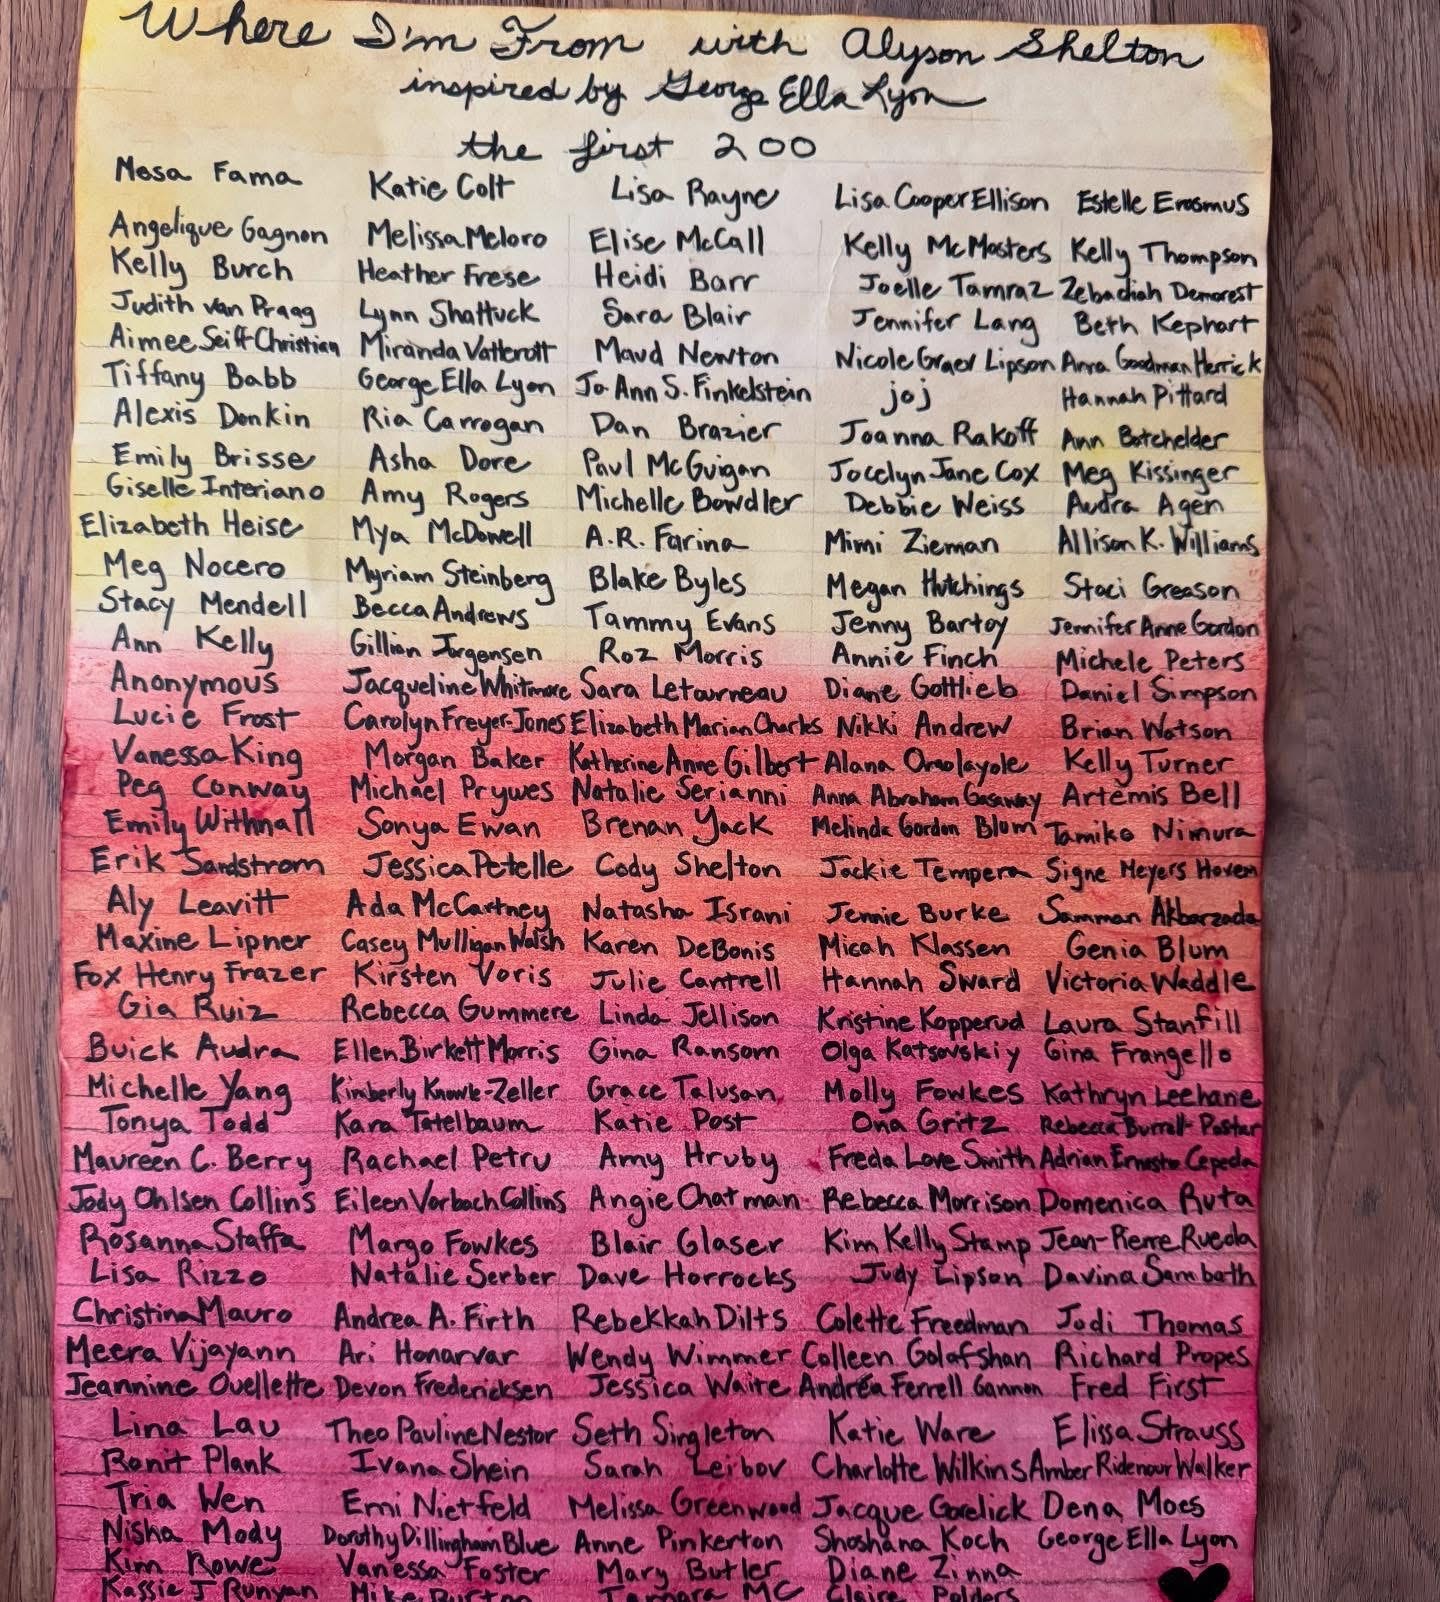 Where I'm From with Alyson Shelton
inspired by George Ella Lyon
the first 200
Nesa Fama Katie Colt Lisa Rayne Lisa Cooper Ellison Estelle Erasmus
Angelique Gagnon Melissa Meloro Elise McCall Kelly McMasters Kelly Thompson
Kelly Burch Heather Frese Heidi Barr Joelle Tamraz Zebadiah Demorest
Judith van Praag Lynn Shattuck Sara Blair Jennifer Lang Beth Kephart
Aimee Seiff Christian Miranda Vatterott Maud Newton Nicole Graev Lipson Anna Goodman Herrick
Tiffany Babb George Ella Lyon Jo Ann S. Finkelstein joj Hannah Pittard
Alexis Donkin Ria Carrogan Dan Brazier Joanna Rakoff Ann Batchelder
Emily Brisse Asha Dore Paul McGuigan Jocelyn Jane Cox Meg Kissinger
Giselle Interiano Amy Rogers Michelle Bowdler Debbie Weiss Audra Agen
Elizabeth Heise Mya McDowell A.R. Farina Mimi Zieman Allison K. Williams
Meg Nocero Myriam Steinberg Blake Byles Megan Hutchings Staci Greason
Stacy Mendell Becca Andrews Tammy Evans Jenny Bartoy Jennifer Anne Gordon
Ann Kelly Gillian Jorgensen Roz Morris Annie Finch Michele Peters
Anonymous Jacqueline Whitmore Sara Letourneau Diane Gottlieb Daniel Simpson
Lucie Frost Carolyn Freyer-Jones Elizabeth Marian Charles Nikki Andrew Brian Watson
Vanessa King Morgan Baker Katherine Anne Gilbert Alana Omolayole Kelly Turner
Peg Conway Michael Prywes Natalie Serianni Anna Abraham Gasaway Artemis Bell
Emily Withnall Sonya Ewan Brenan Yack Melinda Gordon Blum Tamiko Nimura
Erik Sandstrom Jessica Petelle Cody Shelton Jackie Tempera Signe Meyers Hoven
Aly Leavitt Ada McCartney Natasha Israni Jennie Burke Samman Akbarzada
Maxine Lipner Casey Mulligan Walsh Karen DeBonis Micah Klassen Genia Blum
Fox Henry Frazer Kirsten Voris Julie Cantrell Hannah Sward Victoria Waddle
Gia Ruiz Rebecca Gummere Linda Jellison Kristine Kopperud Laura Stanfill
Buick Audra Ellen Birkett Morris Gina Ransom Olga Katsovskiy Gina Frangello
Michelle Yang Kimberly Knowle-Zeller Grace Talusan Molly Fowkes Kathryn Leehane
Tonya Todd Kara Tatelbaum Katie Post Ona Gritz Rebecca Burrell-Paster
Maureen C. Berry Rachael Petru Amy Hruby Freda Love Smith Adrian Ernesto Cepeda
Jody Ohlsen Collins Eileen Vorbach Collins Angie Chatman Rebecca Morrison Domenica Ruta
Rosanna Staffa Margo Fowkes Blair Glaser Kim Kelly Stamp Jean-Pierre Rueda
Lisa Rizzo Natalie Serber Dave Horrocks Judy Lipson Davina Sambath
Christina Mauro Andrea A. Firth Rebekkah Dilts Colette Freedman Jodi Thomas
Meera Vijayann Ari Honarvar Wendy Wimmer Colleen Golafshan Richard Propes
Jeannine Ouellette Devon Fredericksen Jessica Waite Andréa Ferrell Gannon Fred First
Lina Lau Theo Pauline Nestor Seth Singleton Katie Ware Elissa Strauss
Ronit Plank Ivana Shein Sarah Leibov Charlotte Wilkins Amber Ridenour Walker
Tria Wen Emi Nietfeld Melissa Greenwood Jacque Gorelick Dena Moes
Nisha Mody Dorothy Dillingham Blue Anne Pinkerton Shoshana Koch George Ella Lyon
Kim Rowe Vanessa Foster Mary Butler Diane Zinna
Kassie J Runyan Mike Burton Tamara MC Claire Polders